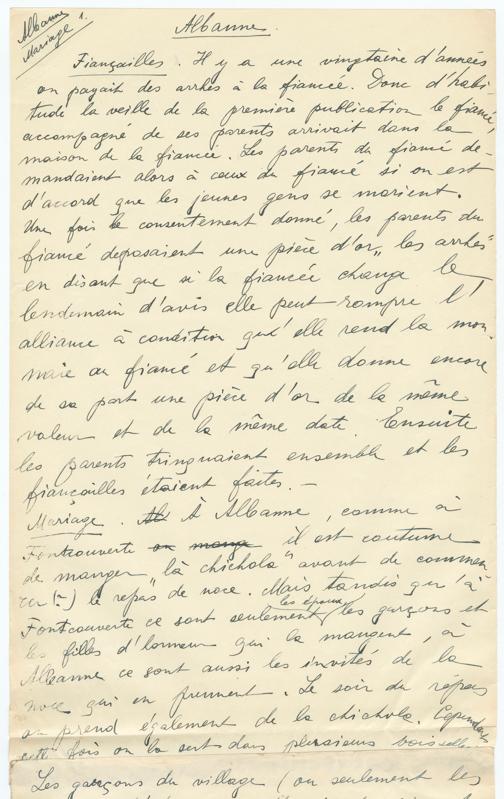 Albanne
Mariage 1.
Albanne.
Fiançailles. Il y a une vingtaine d'années
on payait des arrhes à la fiancée. Donc d'habi-
tude la veille de la première publication le fiancé,
accompagné de ses parents arrivait dans la
maison de la fiancée. Les parents du fiancé de-
mandaient alors à ceux du fiancé si on est
d'accord que les jeunes gens se marient.
Une fois le consentement donné, les parents du
fiancé deposaient une pièce d'or „les arrhes"
en disant que si la fiancée change le
lendemain d'avis elle peut rompre l'
alliance à condition qu'elle rend la mon-
naie au fiancé et qu'elle donne encore
de sa part une pièce d'or de la même
valeur et de la même date. Ensuite
les parents trinquaient ensemble et les
fiançailles étaient faites. —
Mariage. Al À Albanne, comme à
Fontcouverte on mange il est coutume
de manger „la chichola" avant de commen
cer (-) le repas de noce. Mais tandis qu'à
les époux
Fontcouverte ce sont seulement les garçons et
les filles d'honneur qui la mangent, à
Albanne ce sont aussi les invités de la
noce qui en prennent. Le soir du répas
on prend également de la chichola. Cependant
cette fois on la sert dans plusieurs
Les garçons du village (ou seulement les